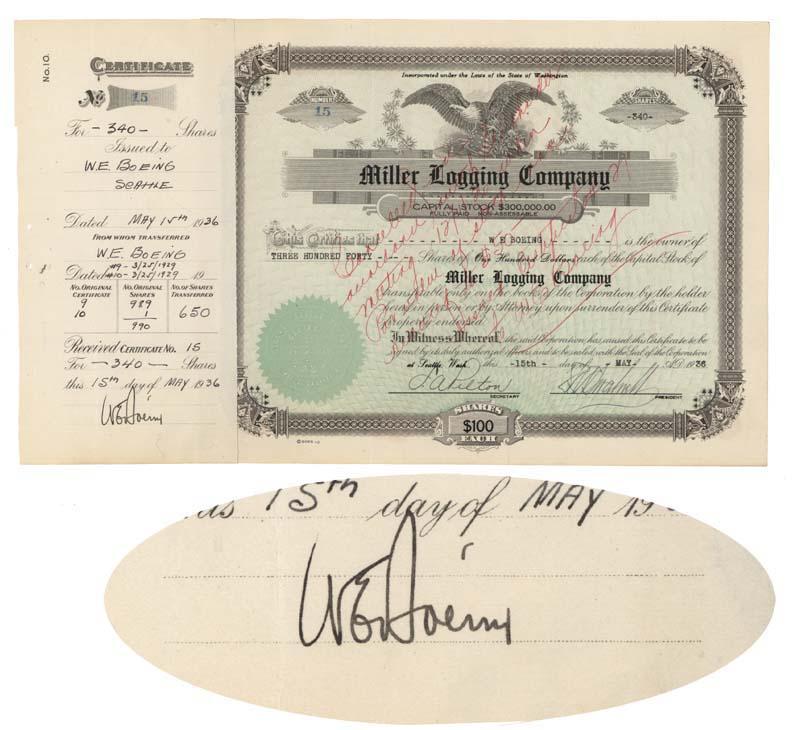 No.10.
CERTIFICATE
No 15
For - 340 - Shares
Issued to
W.E. BOEING
SEATTLE
Dated MAY 15th 1936
FROM WHOM TRANSFERRED
W.E. BOEING
#9 - 3/25/1929
Dated #10 - 3/25/1929 19
No. ORIGINAL CERTIFICATE No. ORIGINAL SHARES No. OF SHARES TRANSFERRED
9 989
10 1 650
990
Received CERTIFICATE No. 15
For - 340 - Shares
this 15th day of MAY 1936
WEBoeing
Incorporated under the Laws of the State of Washington
NUMBER
15
SHARES
-340-
Miller Logging Company
CAPITAL STOCK $300,000.00
FULLY PAID NON-ASSESSABLE
This Certifies that W E BOEING is the owner of
THREE HUNDRED FORTY Shares of One Hundred Dollars each of the Capital Stock of
Miller Logging Company
transferable only on the books of the Corporation by the holder
hereof in person or by Attorney upon surrender of this Certificate
properly endorsed.
In Witness Whereof, the said Corporation has caused this Certificate to be
signed by its duly authorized officers and to be sealed with the Seal of the Corporation
at Seattle, Wash. this -15th- day of -MAY- A.D. 1936
SECRETARY
PRESIDENT
SHARES
$100
EACH
15th day of MAY 19
WEBoeing